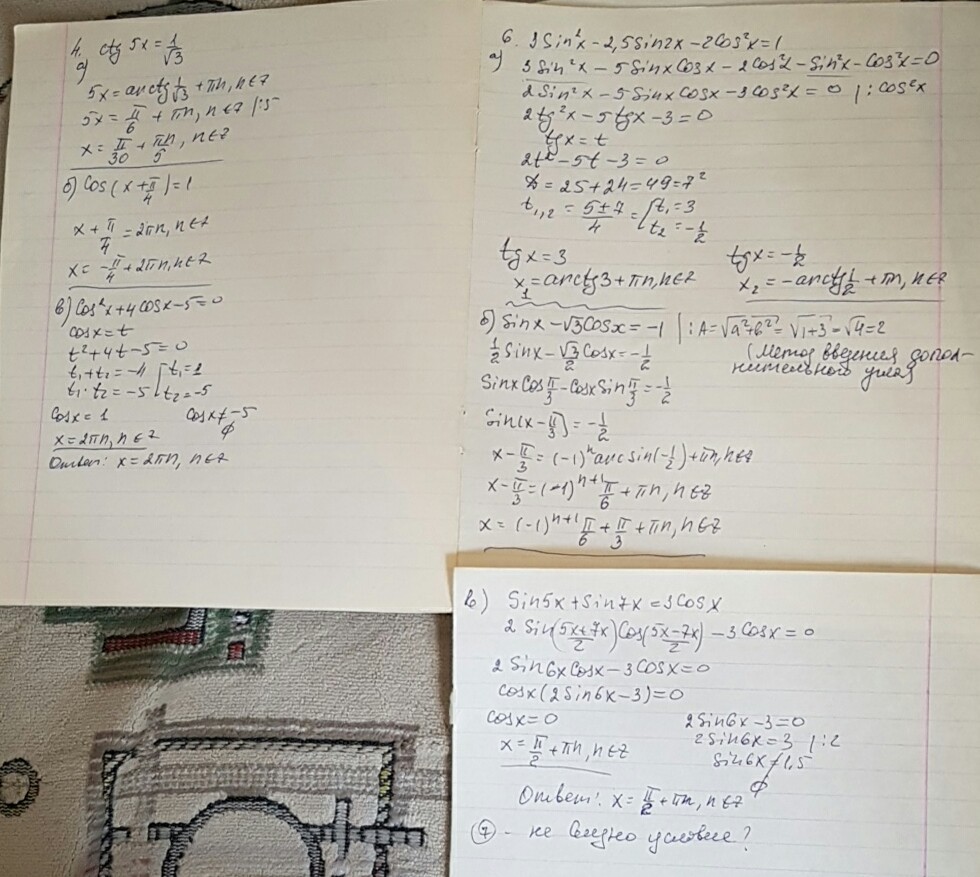 4.
а) ctg 5x = 1/√3
5x = arcctg 1/√3 + πn, n∈Z
5x = π/6 + πn, n∈Z |:5
x = π/30 + πn/5, n∈Z
б) Cos(x + π/4) = 1
x + π/4 = 2πn, n∈Z
x = -π/4 + 2πn, n∈Z
в) Cos²x + 4cosx - 5 = 0
cosx = t
t² + 4t - 5 = 0
t₁ + t₂ = -4 [t₁ = 1
t₁ · t₂ = -5 [t₂ = -5
Cosx = 1 Cosx ≠ -5
∅
x = 2πn, n∈Z
Ответ: x = 2πn, n∈Z
6.
а) 3Sin²x - 2,5Sin2x - 2Cos²x = 1
3Sin²x - 5SinxCosx - 2Cos²x - Sin²x - Cos²x = 0
2Sin²x - 5SinxCosx - 3Cos²x = 0 |:cos²x
2tg²x - 5tgx - 3 = 0
tgx = t
2t² - 5t - 3 = 0
D = 25 + 24 = 49 = 7²
t₁,₂ = (5±7)/4 = [t₁ = 3
[t₂ = -1/2
tgx = 3 tgx = -1/2
x₁ = arctg3 + πn, n∈Z x₂ = -arctg1/2 + πn, n∈Z
б) Sinx - √3Cosx = -1 |: A = √a²+b² = √1+3 = √4 = 2
1/2 Sinx - √3/2 Cosx = -1/2 (метод введения допол-
нительного угла)
SinxCosπ/3 - CosxSinπ/3 = -1/2
Sin(x - π/3) = -1/2
x - π/3 = (-1)ⁿarcsin(-1/2) + πn, n∈Z
x - π/3 = (-1)ⁿ⁺¹ π/6 + πn, n∈Z
x = (-1)ⁿ⁺¹ π/6 + π/3 + πn, n∈Z
в) Sin5x + Sin7x = 3Cosx
2Sin((5x+7x)/2)Cos((5x-7x)/2) - 3Cosx = 0
2Sin6xCosx - 3Cosx = 0
cosx(2Sin6x - 3) = 0
cosx = 0 2Sin6x - 3 = 0
x = π/2 + πn, n∈Z 2Sin6x = 3 |:2
Sin6x ≠ 1,5
∅
Ответ: x = π/2 + πn, n∈Z
⑦ - не видно условие?